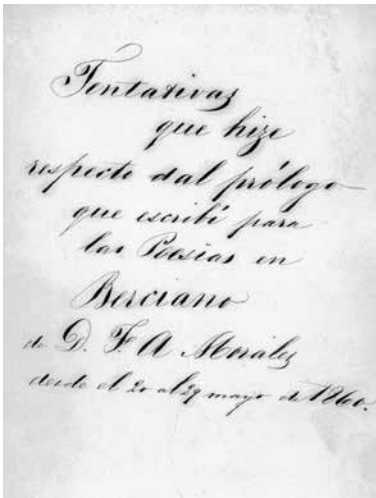 Tentativas
que hize
respecto dal prólogo
que escribí para
las Poesias en
Berciano
de D. F. A Morales
desde el 20 al 29 mayo de 1860.